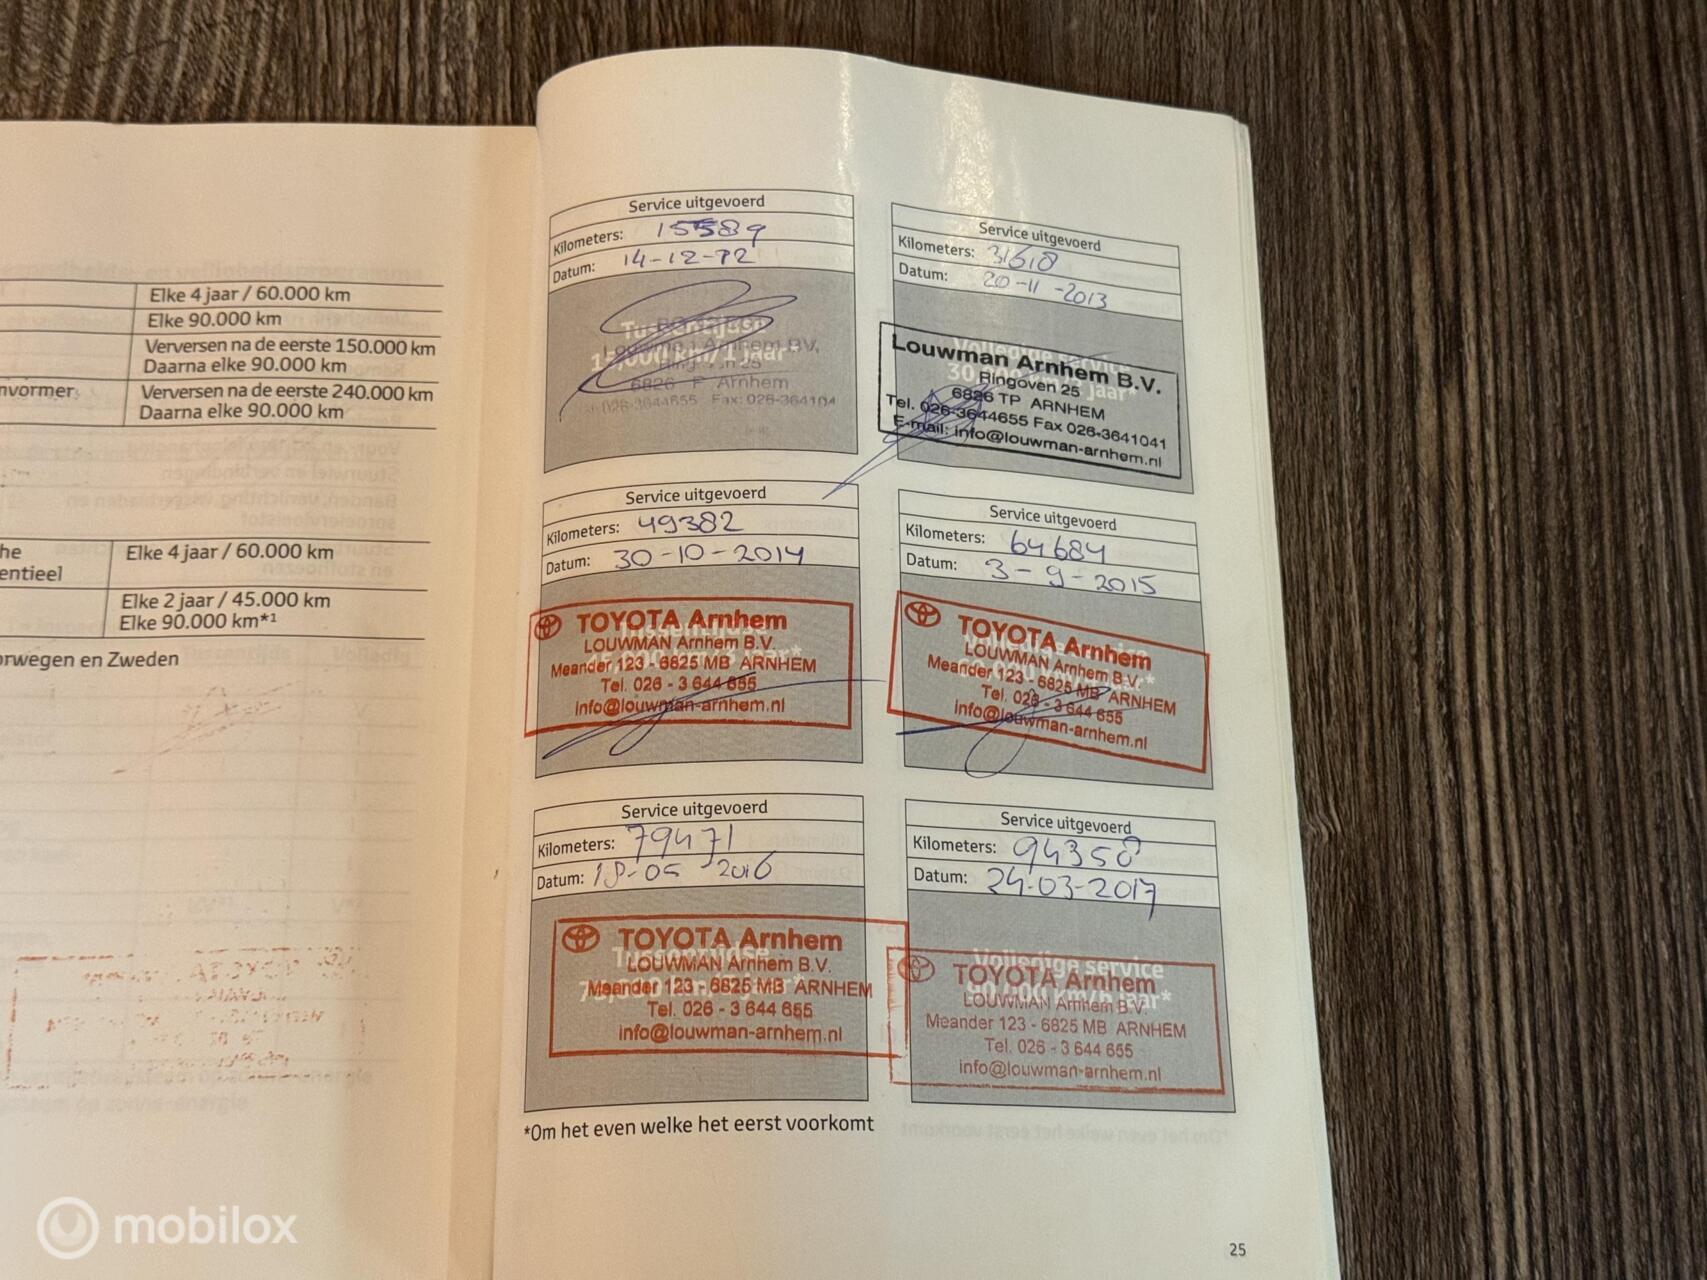 Elke 4 jaar / 60.000 km
Elke 90.000 km
Verversen na de eerste 150.000 km
Daarna elke 90.000 km
nvormer
Verversen na de eerste 240.000 km
Daarna elke 90.000 km
he
entieel
Elke 4 jaar / 60.000 km
Elke 2 jaar / 45.000 km
Elke 90.000 km*1
orwegen en Zweden
Service uitgevoerd
Kilometers: 15589
Datum: 14-12-
Tussentijdse
15.000 km/1 jaar*
Arnhem BV,
6826 Arnhem
026-3644655 Fax: 026-364104
Service uitgevoerd
Kilometers: 31618
Datum: 20-11-2013
Volledige service
Louwman Arnhem B.V.
Ringoven 25
6826 TP ARNHEM
Tel. 026-3644655 Fax 026-3641041
E-mail: info@louwman-arnhem.nl
Service uitgevoerd
Kilometers: 49382
Datum: 30-10-2014
TOYOTA Arnhem
LOUWMAN Arnhem B.V.
Meander 123 - 6825 MB ARNHEM
Tel. 026 - 3 644 655
info@louwman-arnhem.nl
Service uitgevoerd
Kilometers: 64684
Datum: 3-9-2015
TOYOTA Arnhem
LOUWMAN Arnhem B.V.
Meander 123 - 6825 MB ARNHEM
Tel. 026 - 3 644 655
info@louwman-arnhem.nl
Service uitgevoerd
Kilometers: 79471
Datum: 18-05-2016
TOYOTA Arnhem
Tussentijdse
LOUWMAN Arnhem B.V.
Meander 123 - 6825 MB ARNHEM
Tel. 026 - 3 644 655
info@louwman-arnhem.nl
Service uitgevoerd
Kilometers: 94358
Datum: 24-03-2017
Volledige service
TOYOTA Arnhem
LOUWMAN Arnhem B.V.
Meander 123 - 6825 MB ARNHEM
Tel. 026 - 3 644 655
info@louwman-arnhem.nl
*Om het even welke het eerst voorkomt
25
mobilox